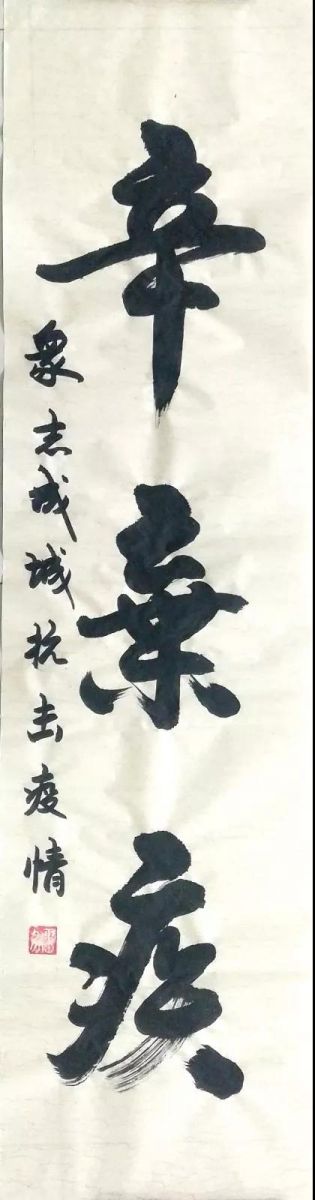 辛棄疾
衆志成城抗击疫情